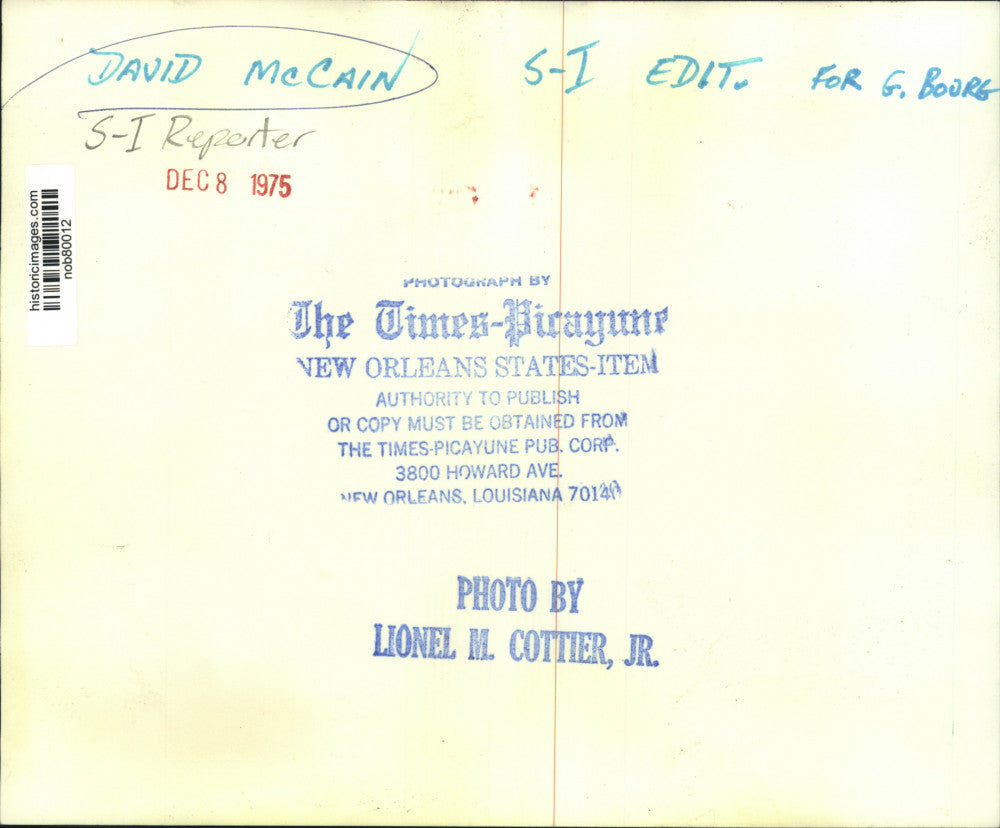 DAVID McCAIN S-I EDIT. FOR G. BOURG
S-I Reporter
DEC 8 1975
historicimages.com
nob80012
PHOTOGRAPH BY
The Times-Picayune
NEW ORLEANS STATES-ITEM
AUTHORITY TO PUBLISH
OR COPY MUST BE OBTAINED FROM
THE TIMES-PICAYUNE PUB. CORP.
3800 HOWARD AVE.
NEW ORLEANS, LOUISIANA 70140
PHOTO BY
LIONEL M. COTTIER, JR.